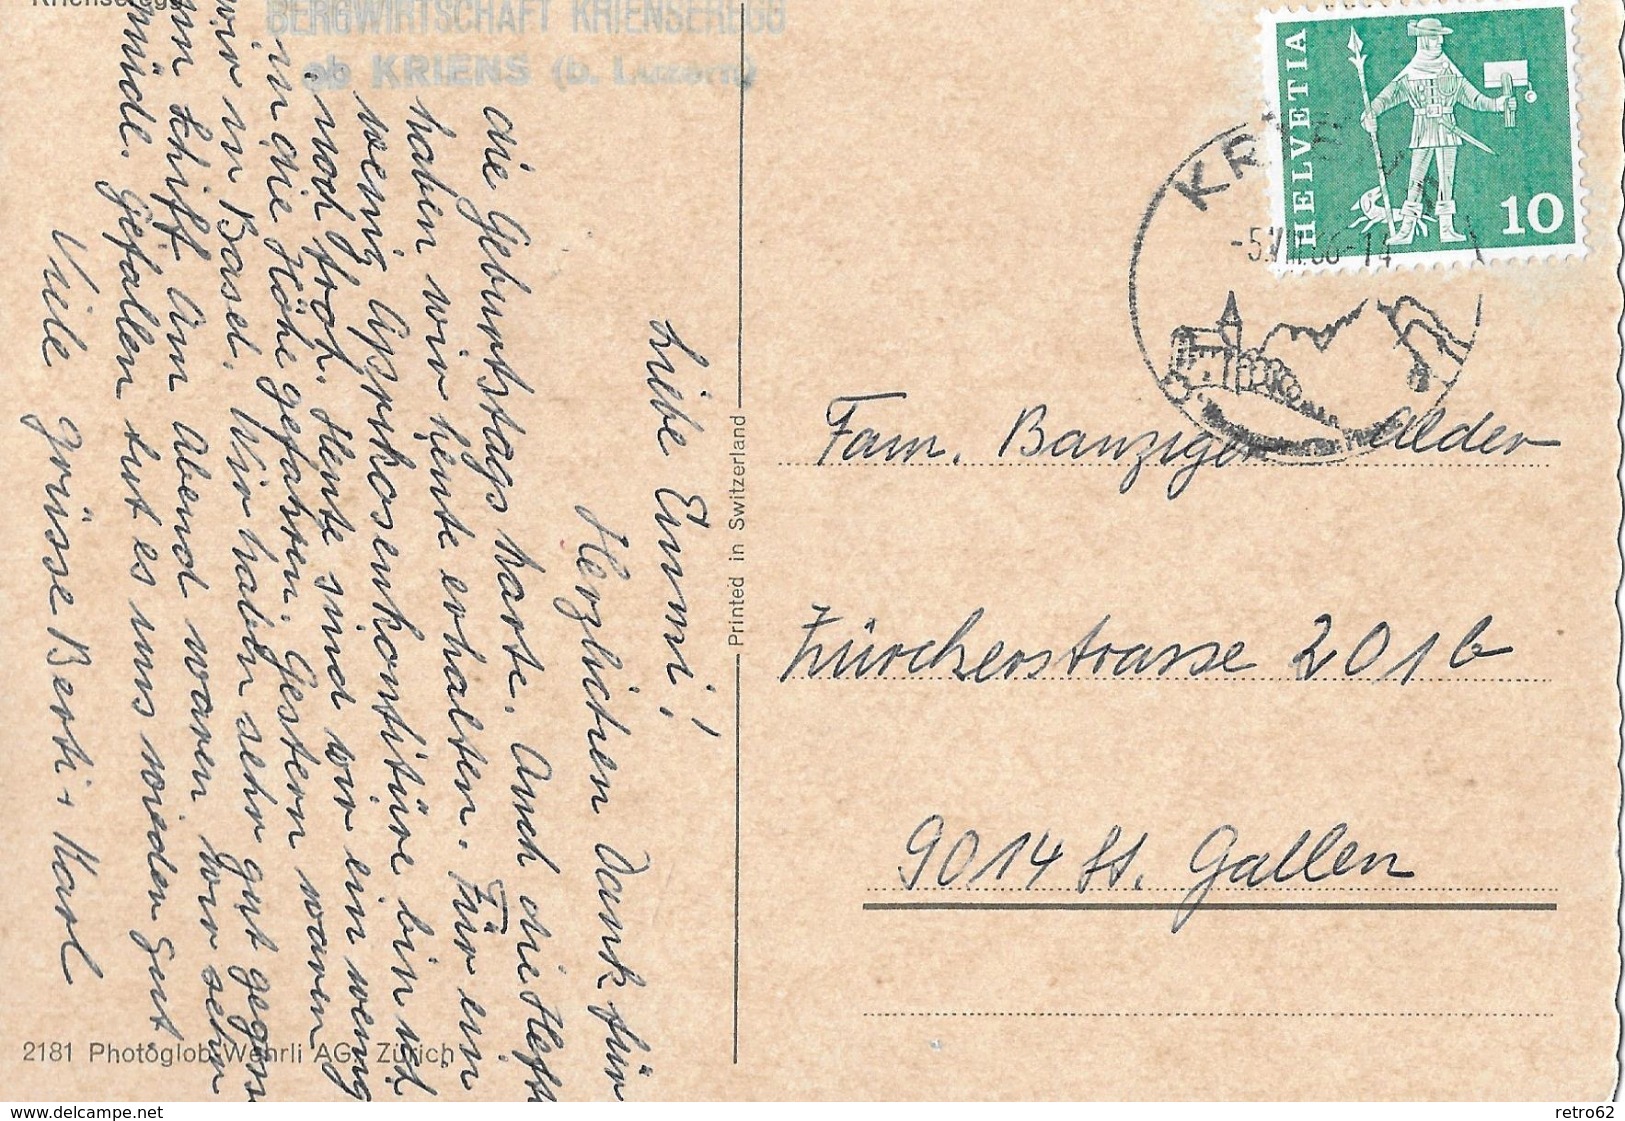 Krienseregg
BERGWIRTSCHAFT KRIENSEREGG
ob KRIENS (b. Luzern)
Liebe Emmi!
Herzlichen Dank für
die Geburtstagskarte. Auch die Hefte
haben wir heute erhalten. Für ein
wenig Aprikosenkonfitüre bin ich
und froh. Heute sind wir ein wenig
in die Höhe gefahren. Gestern waren
wir in Basel. Wir haben sehr gut gegessen
Schiff. Am Abend waren wir sehr
müde. Gefallen tut es uns wieder gut
Viele Grüsse Berti + Karl
2181 Photoglob-Wehrli AG, Zürich
Printed in Switzerland
HELVETIA
10
KRIENS
-5.VIII.66-14
Fam. Banziger Alder
Zürcherstrasse 201b
9014 St. Gallen
www.delcampe.net
retro62